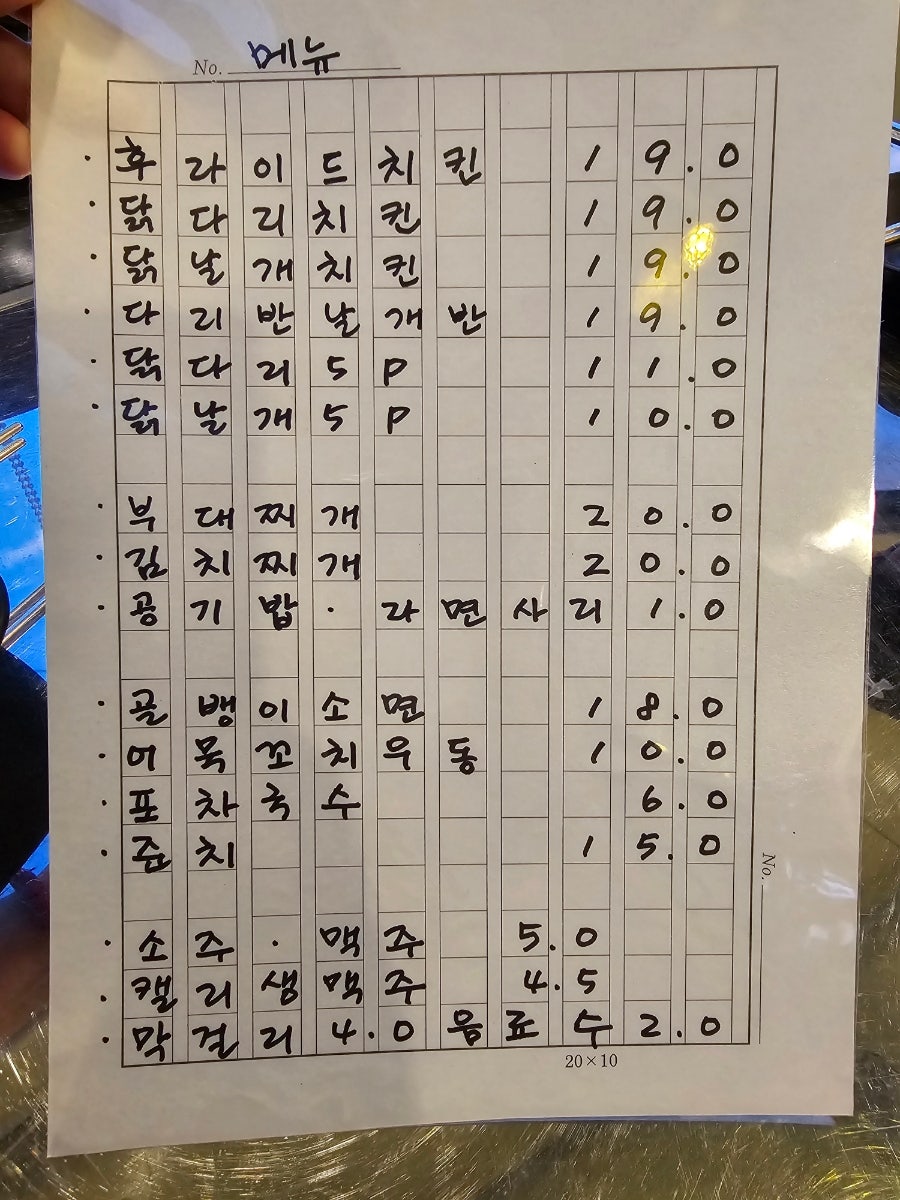 No. 메뉴
· 후라이드치킨 19.0
· 닭다리치킨 19.0
· 닭날개치킨 19.0
· 다리반날개반 19.0
· 닭다리5P 11.0
· 닭날개5P 10.0
· 부대찌개 20.0
· 김치찌개 20.0
· 공기밥·라면사리 1.0
· 골뱅이소면 18.0
· 어묵꼬치우동 10.0
· 포차국수 6.0
· 쥐치 15.0
· 소주·맥주 5.0
· 캘리생맥주 4.5
· 막걸리 4.0 음료수 2.0
No.
20×10